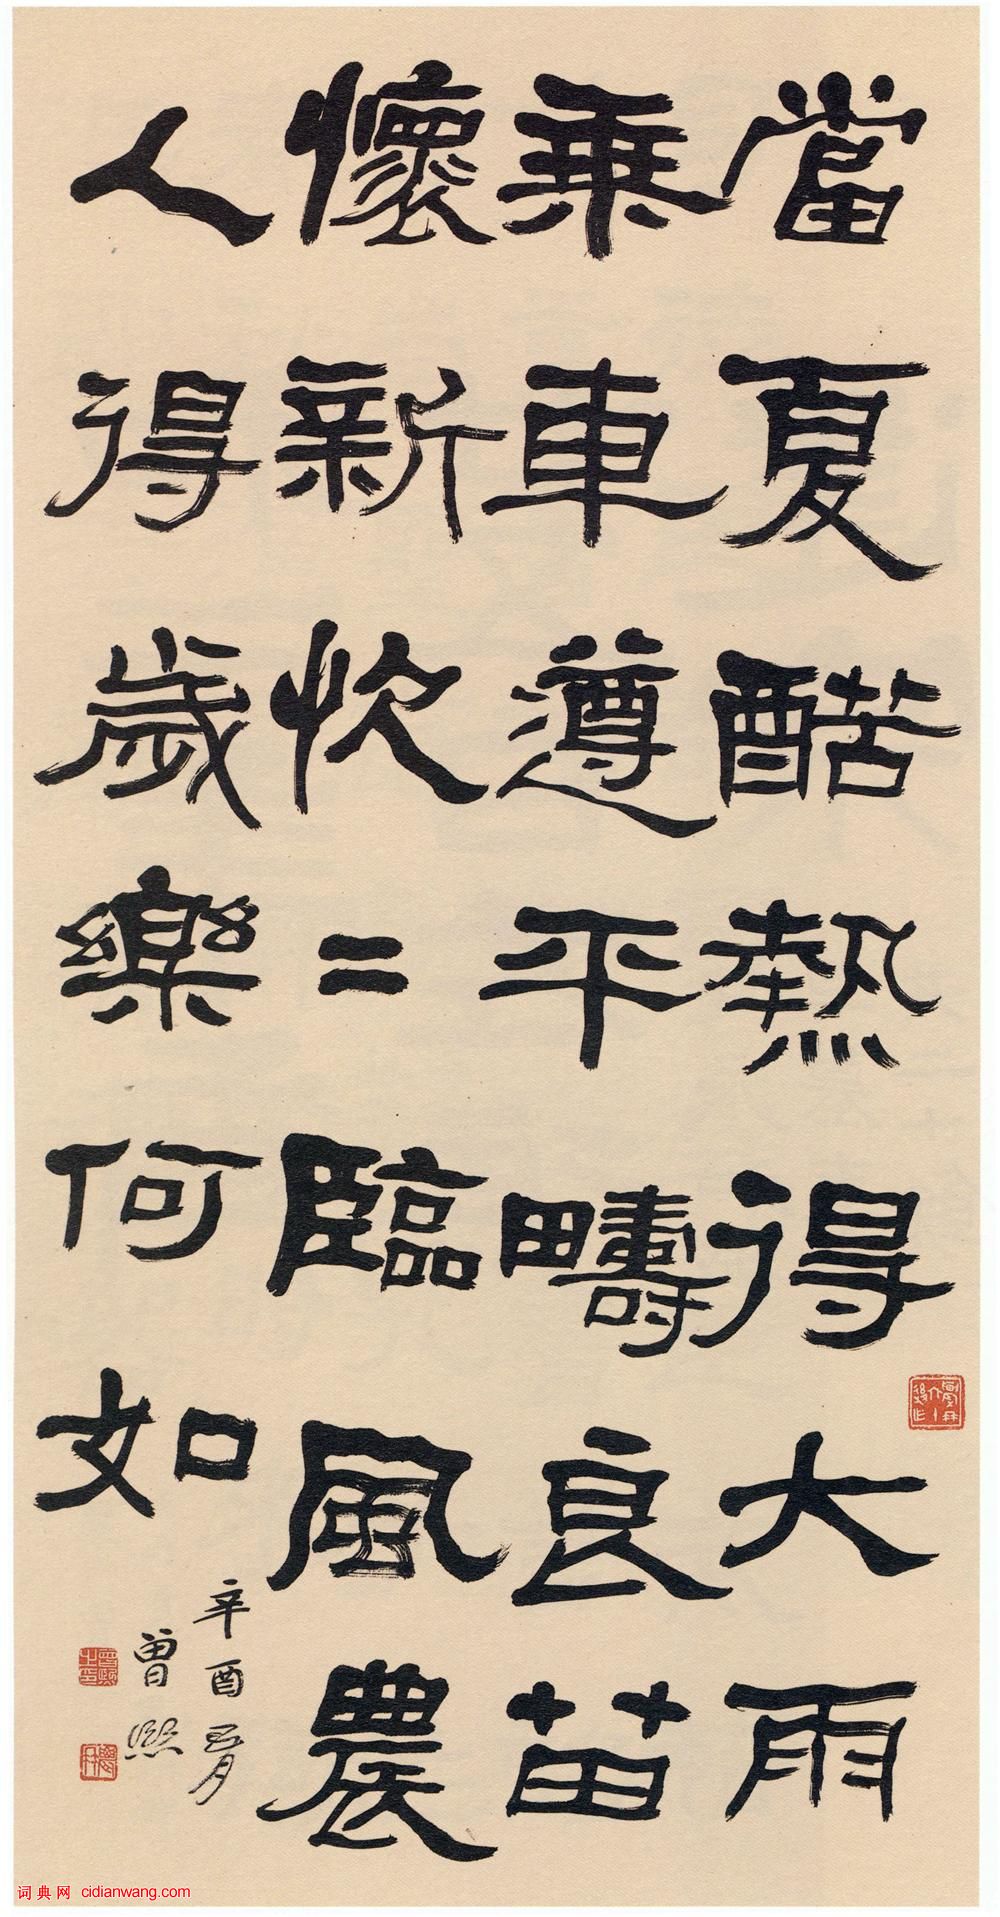 當夏酷熱得大雨
乗車遵平疇良苗
懷新忺〻臨風農
人得歲樂何如
辛酉五月
曾熙
词典网 cidianwang.com